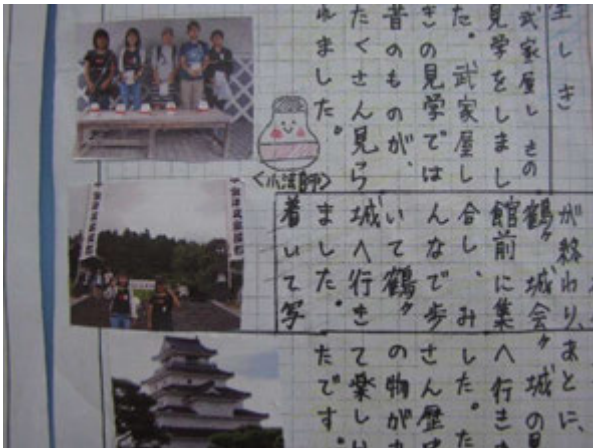 しき
武家屋しきの
見学をしまし
た。武家屋し
きの見学では
昔のものが、
たくさん見ら
れました。
<小法師>
が終わり、
鶴ヶ城会
館前に集
合し、み
んなで歩
いて鶴ヶ
城へ行き
ました。
着いて写
とに、
ヶ城の
へ行き
した。た
さん歴
の物が
て楽し
たです。
会津武家屋敷